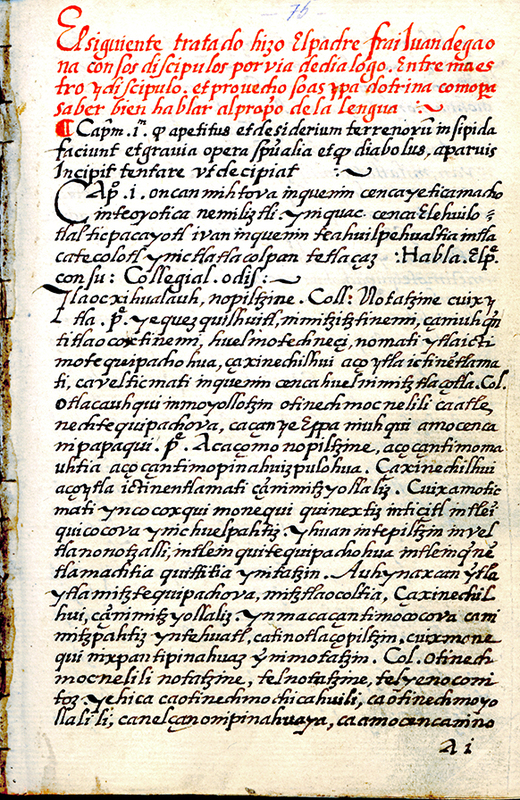 76
El siguiente tratado hizo El padre frai Iuan de gao
na con sos discipulos por via de dialogo. Entre maes
tro y discipulo. et provechosoas y pa dotrina como pa
saber bien hablar al propo de la lengua :~
¶ Capm. im. qp apetitus et desiderium terrenorū insipida
faciunt et gravia opera spualia et qp diabolus, a parvis
Incipit tentare vt decipiat :~
Cap. i. oncan mihtova inquenin cenca yeticamacho
in teoyotica nemiliztli yniquac. cenca tlehuilo
tlalticpacayotl ivan inquenin teahuilpehualtia intla
catecolotl ynic tlatlacolpan tetlaçaz :Habla. Elpe.
con su: Collegial. o dis:~
Tlaocxihualauh, nopiltzine. Coll: Notatzine cuix y
tla. pe. yequezquilhuitl, nimitzitztinemi, çamuh qn
titlaocoxtinemi, huel motech neçi, nomati ytla icti
motequipachohua, çaxinechilhui aço ytla ictinētlama
ti, ca vel ticmati inquenin cenca huel nimitztlaçotla. Col.
otlacauhqui inmoyollotzin otinechmocnelili ca atle
nechtequipachova, ca çan ye Eppa niuhqui amo cenca
nipapaqui. pe. Acaçomo nopiltzine, aço çan timoma
uhtia aço çan timopinahuizpulohua. Caxinechilhui
aço ytla ictinentlamati ca nimitzyollaliz. Cuix amo tic
mati yn cocoxqui monequi quinextiz inticitl intlei
quicocova ynic huel pahtiz. yhuan in tepiltzin in vel
tlanonotzalli, intlein quitequipachohua intlein qnē
tlamachtia quittitia ynitatzin. Auh yn axcan ytla
ytla mitztequipachova, mitztlaocoltia, Caxinechil
hui, ca nimitzyollaliz. yn maca çan timococova ca ni
mitzpahtiz yn tehuatl, ca tinotlaçopiltzin, cuix mone
qui nixpan tipinahuaz yn nimotatzin. Col. otinech
mocnelili notatzine, tel notatzine, tel yeno comi
toz. yehica ca otinechmochicahuili, ca otinechmoyo
llalili, ca nelçan ompinahuaya, ca amo cenca nino
A i